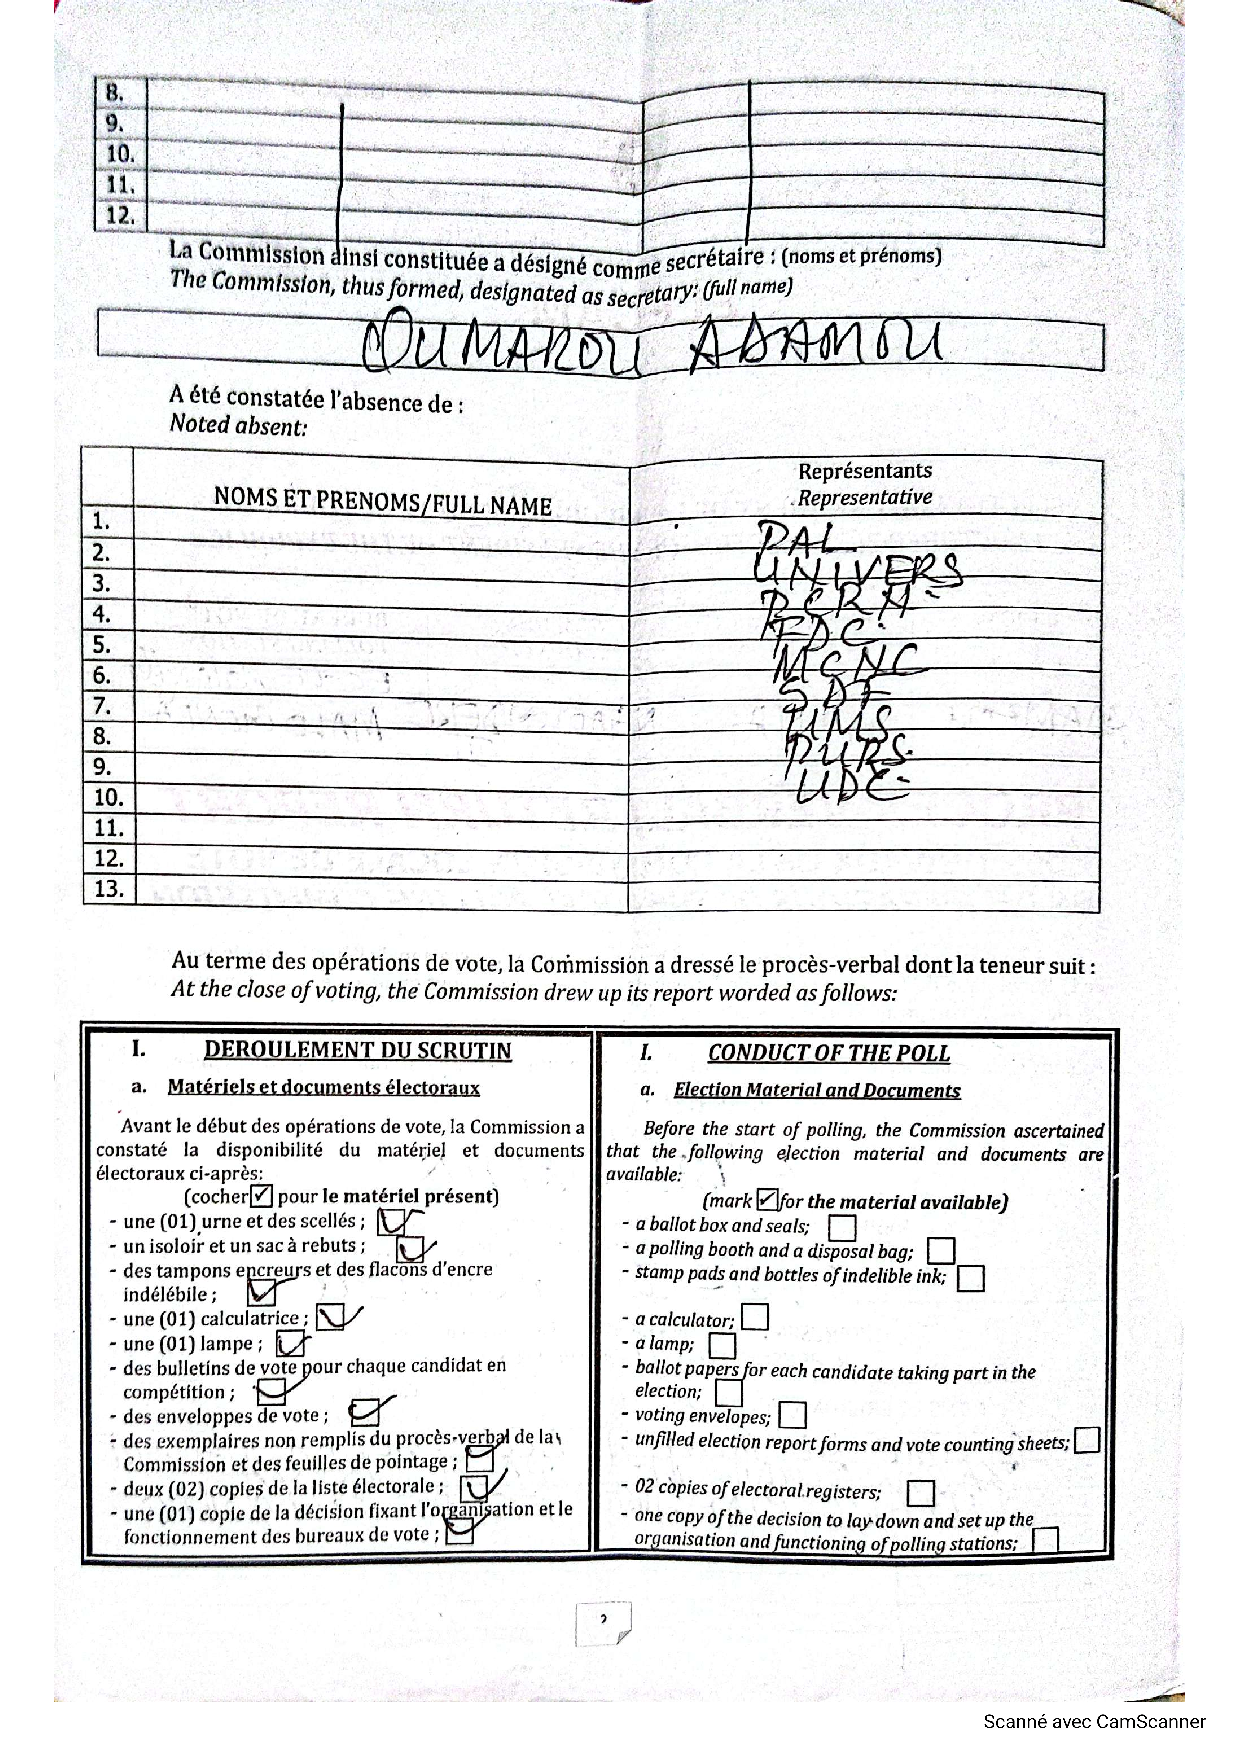 8.
9.
10.
11.
12.
La Commission ainsi constituée a désigné comme secrétaire : (noms et prénoms)
The Commission, thus formed, designated as secretary: (full name)
OUMAROU ADAMOU
A été constatée l'absence de :
Noted absent:
NOMS ET PRENOMS/FULL NAME
Représentants
Representative
1. PAL
2. UNIVERS
3. PCRN
4. FDC
5. MCNC
6. SDF
7. UMS
8. PURS
9. UDC
10.
11.
12.
13.
Au terme des opérations de vote, la Commission a dressé le procès-verbal dont la teneur suit :
At the close of voting, the Commission drew up its report worded as follows:
I. DEROULEMENT DU SCRUTIN
a. Matériels et documents électoraux
Avant le début des opérations de vote, la Commission a
constaté la disponibilité du matériel et documents
électoraux ci-après:
(cocher ☑ pour le matériel présent)
- une (01) urne et des scellés ; ☑
- un isoloir et un sac à rebuts ; ☑
- des tampons encreurs et des flacons d'encre
indélébile ; ☑
- une (01) calculatrice ; ☑
- une (01) lampe ; ☑
- des bulletins de vote pour chaque candidat en
compétition ; ☑
- des enveloppes de vote ; ☑
- des exemplaires non remplis du procès-verbal de la
Commission et des feuilles de pointage ; ☑
- deux (02) copies de la liste électorale ; ☑
- une (01) copie de la décision fixant l'organisation et le
fonctionnement des bureaux de vote ; ☑
I. CONDUCT OF THE POLL
a. Election Material and Documents
Before the start of polling, the Commission ascertained
that the following election material and documents are
available:
(mark ☑ for the material available)
- a ballot box and seals; ☐
- a polling booth and a disposal bag; ☐
- stamp pads and bottles of indelible ink; ☐
- a calculator; ☐
- a lamp; ☐
- ballot papers for each candidate taking part in the
election; ☐
- voting envelopes; ☐
- unfilled election report forms and vote counting sheets; ☐
- 02 copies of electoral registers; ☐
- one copy of the decision to lay down and set up the
organisation and functioning of polling stations; ☐
2
Scanné avec CamScanner